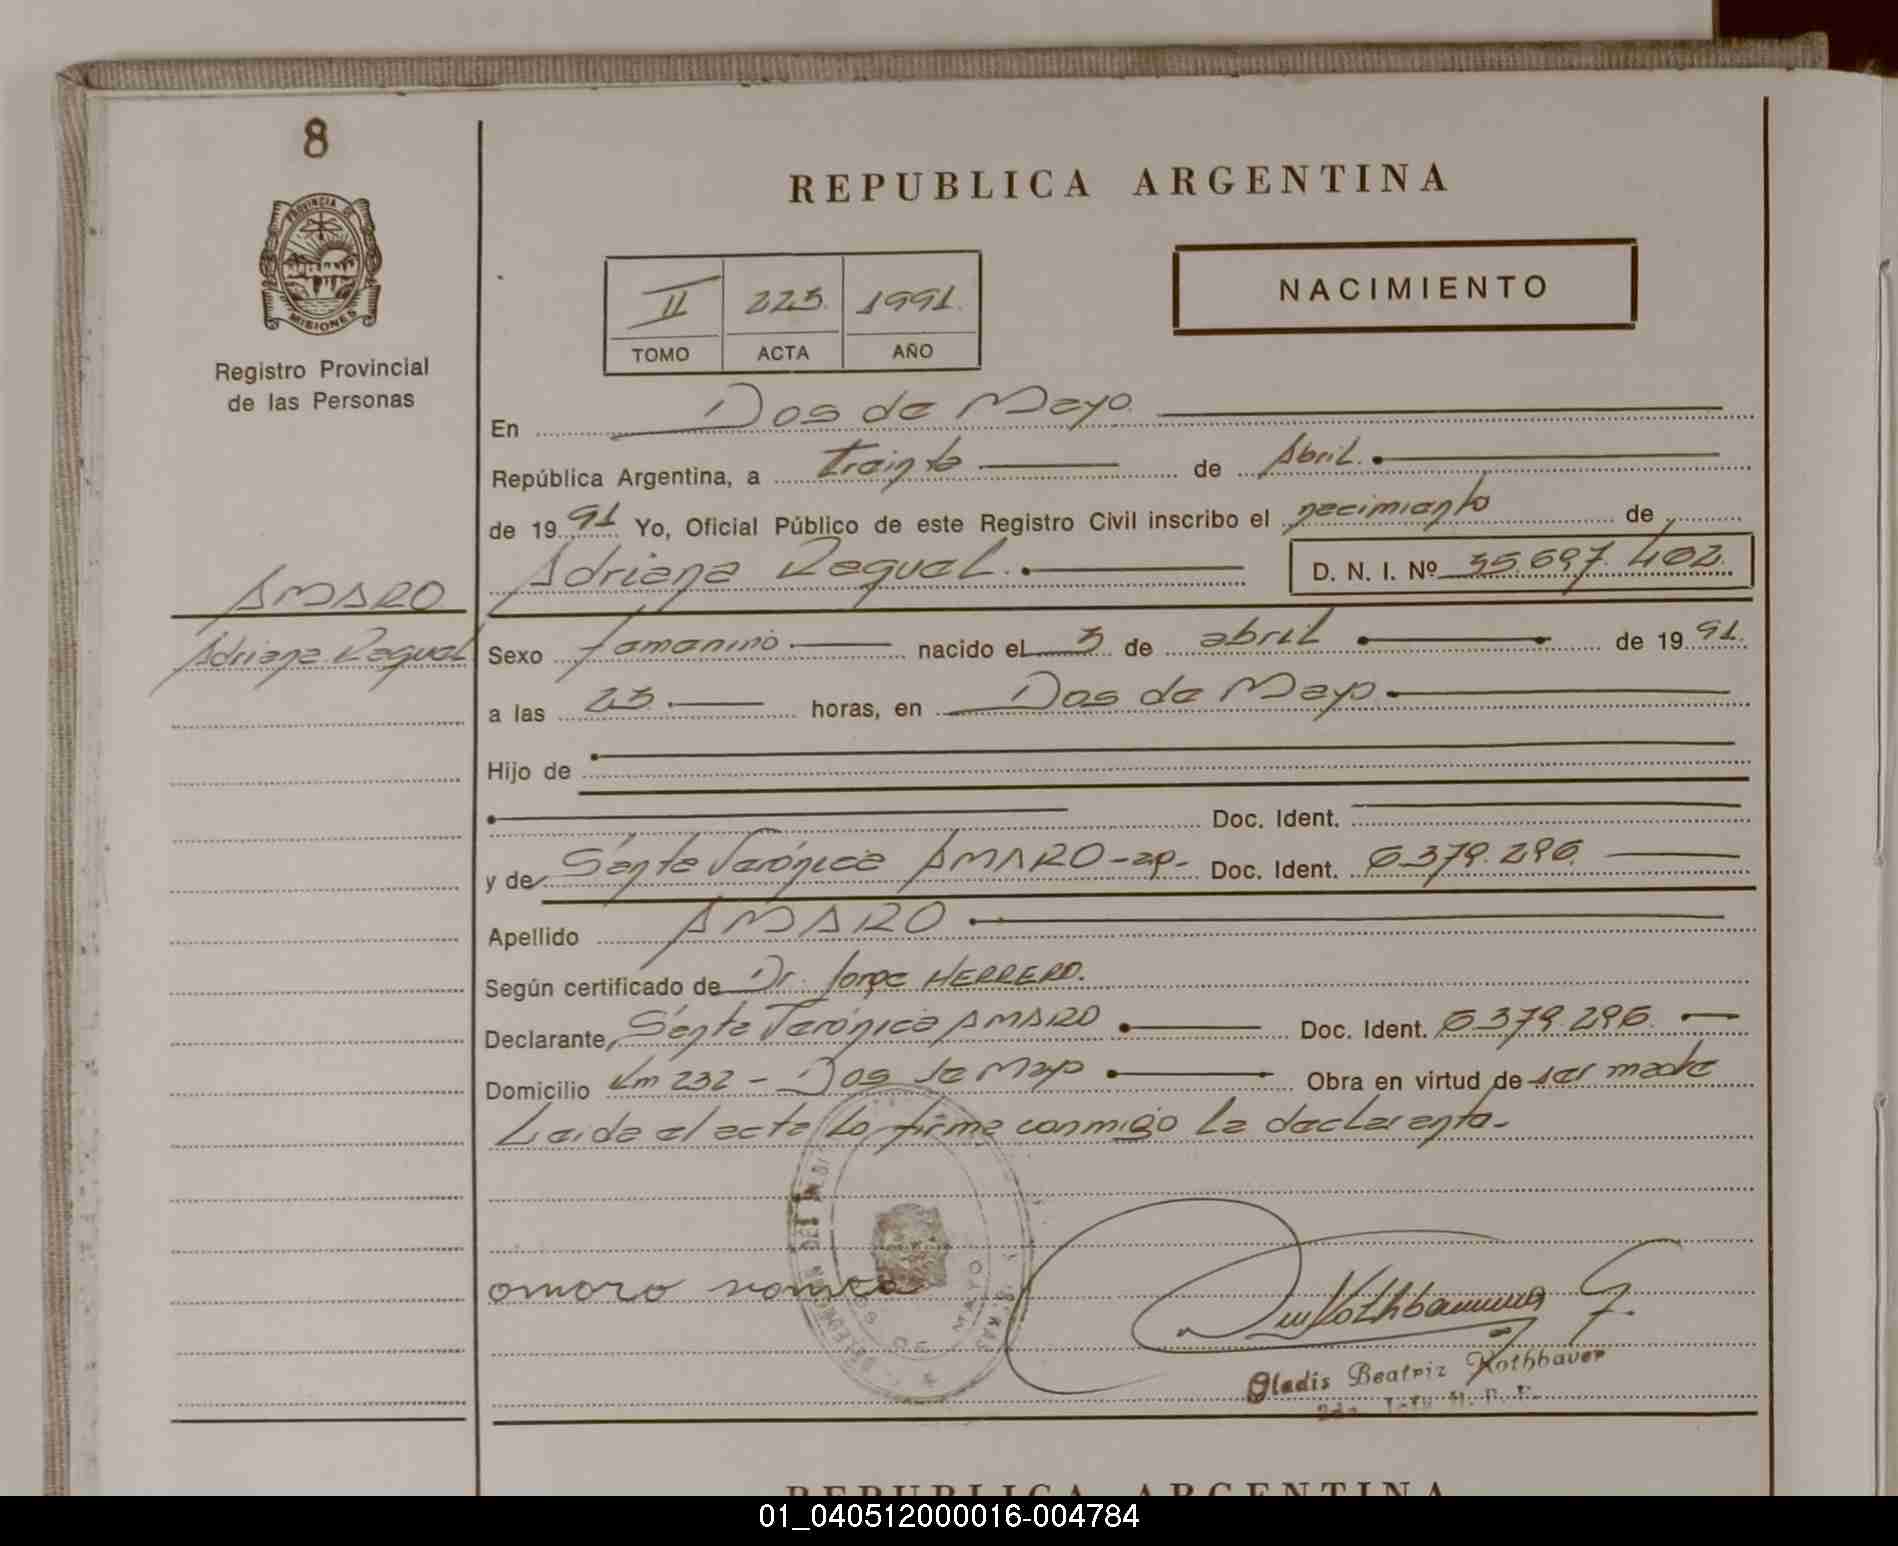 8
PROVINCIA DE
MISIONES
Registro Provincial
de las Personas
REPUBLICA ARGENTINA
NACIMIENTO
II 223. 1991.
TOMO ACTA AÑO
En Dos de Mayo.
República Argentina, a treinta de Abril.
de 1991 Yo, Oficial Público de este Registro Civil inscribo el nacimiento de
Adriana Raquel. D. N. I. Nº 35.697.402.
AMARO
Adriana Raquel
Sexo femenino nacido el 3 de abril de 1991.
a las 23. horas, en Dos de Mayo.
Hijo de
Doc. Ident.
y de Santa Verónica AMARO-ap- Doc. Ident. 6379.296.
Apellido AMARO
Según certificado de Dr. Jorge HERRERO.
Declarante Santa Verónica AMARO Doc. Ident. 6379.296.
Domicilio Km 232 - Dos de Mayo Obra en virtud de ser madre
Leida el acta lo firma conmigo la declaranta.
MAYO
omoro
Gladis Beatriz Rothbauer
REPUBLICA ARGENTINA
01_040512000016-004784